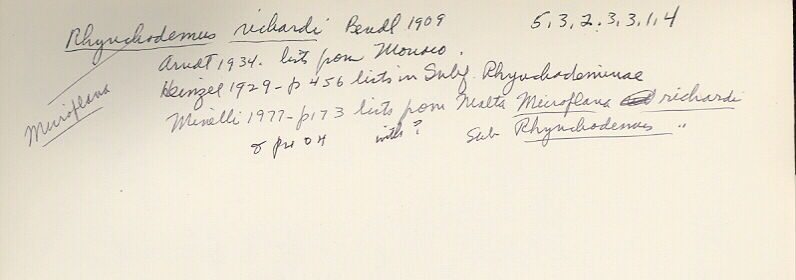 Rhynchodemus richardi Bendl 1909 5,3,2.3,3,1,4
Arndt 1934. lists from Monaco.
Heinzel 1929-p 456 lists in Subf. Rhynchodeminae
Microplana
Minelli 1977-p173 lists from Malta Microplana richardi
& p 104 with? Sub Rhynchodemus "